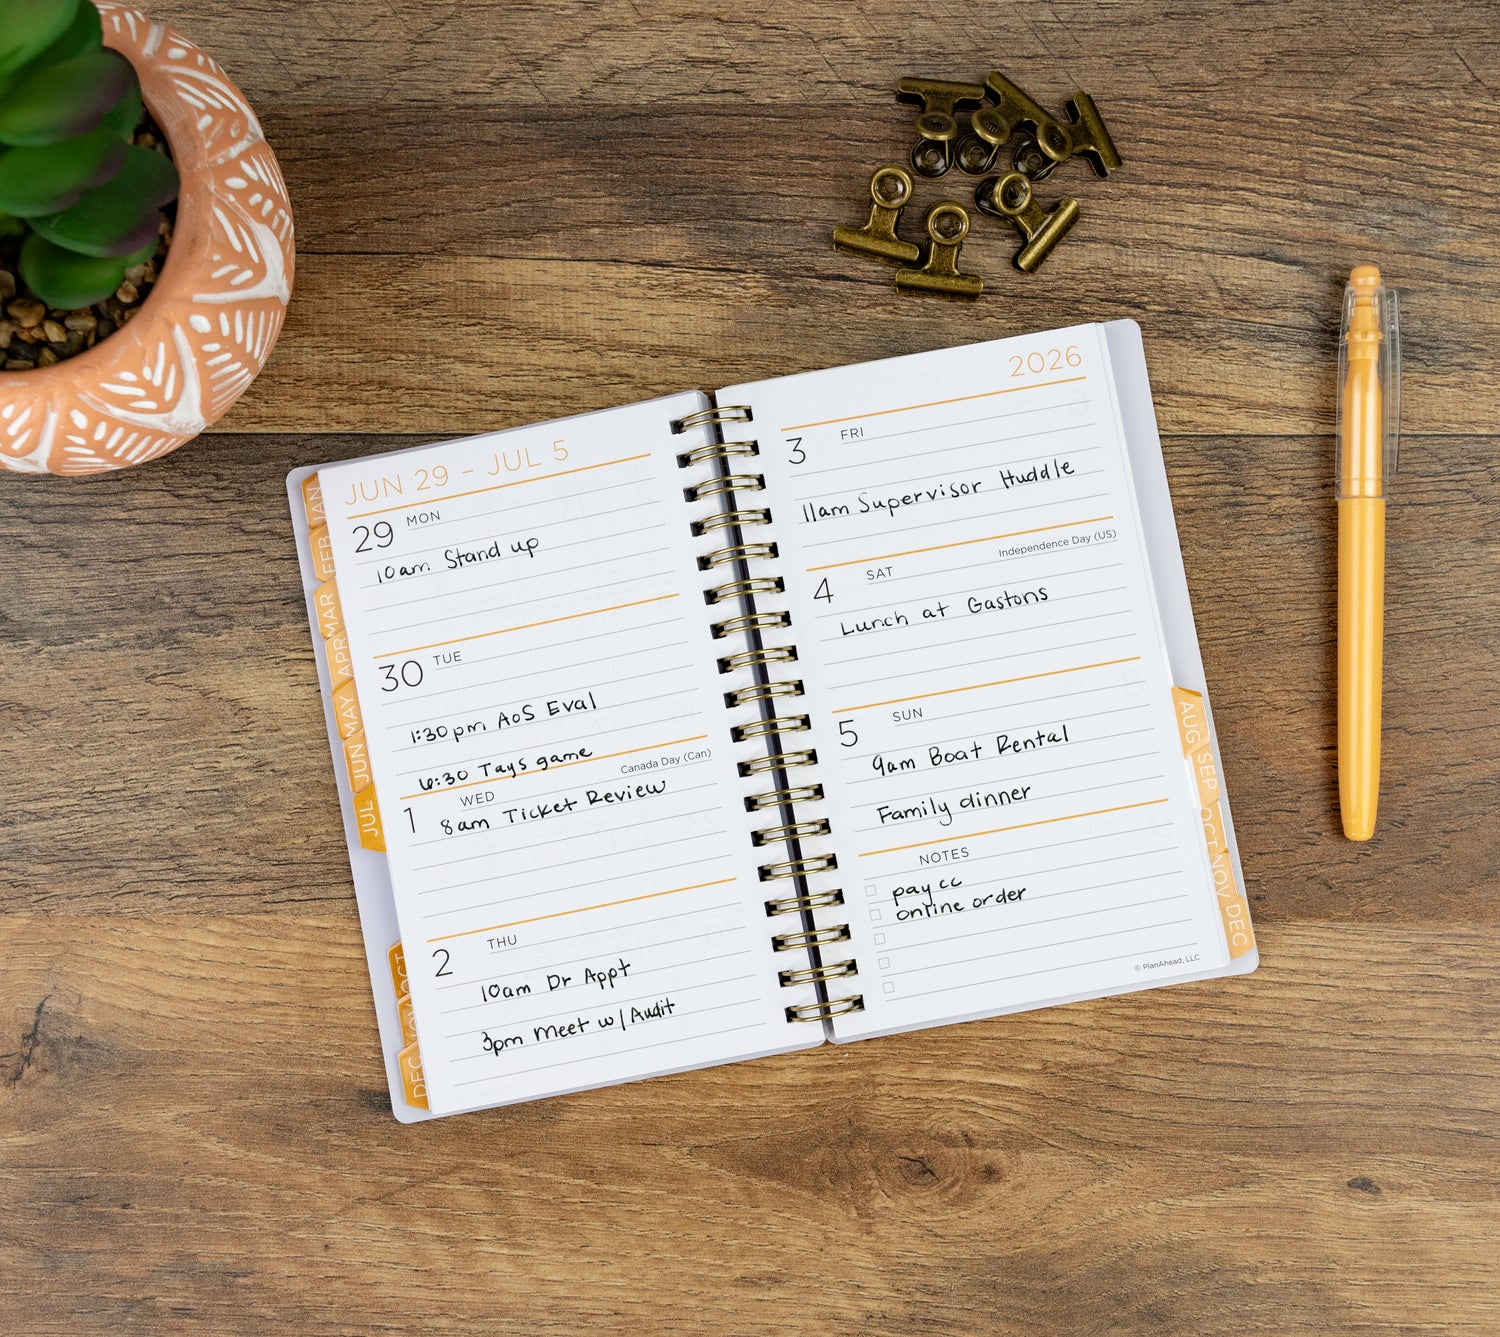 JUN 29 - JUL 5
29 MON
10am Stand up
30 TUE
1:30pm AoS Eval
6:30 Tays game
Canada Day (Can)
1 WED
8am Ticket Review
2 THU
10am Dr Appt
3pm Meet w/Audit
2026
3 FRI
11am Supervisor Huddle
Independence Day (US)
4 SAT
Lunch at Gastons
5 SUN
9am Boat Rental
Family dinner
NOTES
pay cc
online order
© PlanAhead, LLC
JAN
FEB
MAR
APR
MAY
JUN
JUL
OCT
NOV
DEC
AUG
SEP
OCT
NOV
DEC